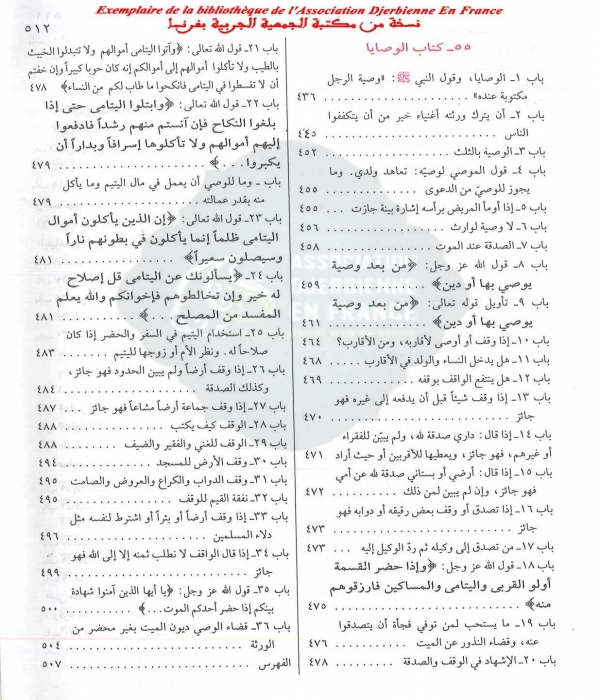 Exemplaire de la bibliothèque de l'Association Djerbienne En France
نسخة من مكتبة الجمعية الجربية بفرنسا
٥١٢
٥٥ـ كتاب الوصايا
باب ١ـ الوصايا، وقول النبي ﷺ: «وصية الرجل
مكتوبة عنده» ٤٣٦
باب ٢ـ أن يترك ورثته أغنياء خير من أن يتكففوا
الناس ٤٤٥
باب ٣ـ الوصية بالثلث ٤٥٢
باب ٤ـ قول الموصي لوصيّه: تعاهد ولدي. وما
يجوز للوصيّ من الدعوى ٤٥٥
باب ٥ـ إذا أومأ المريض برأسه إشارة بينة جازت ٤٥٥
باب ٦ـ لا وصية لوارث ٤٥٦
باب ٧ـ الصدقة عند الموت ٤٥٨
باب ٨ـ قول الله عز وجل: ﴿من بعد وصية
يوصي بها أو دين﴾ ٤٥٩
باب ٩ـ تأويل قوله تعالى: ﴿من بعد وصية
يوصي بها أو دين﴾ ٤٦١
باب ١٠ـ إذا وقف أو أوصى لأقاربه، ومن الأقارب؟ ٤٦٤
باب ١١ـ هل يدخل النساء والولد في الأقارب ٤٦٨
باب ١٢ـ هل ينتفع الواقف بوقفه ٤٦٩
باب ١٣ـ إذا وقف شيئاً قبل أن يدفعه إلى غيره فهو
جائز ٤٧٠
باب ١٤ـ إذا قال: داري صدقة لله، ولم يبيّن للفقراء
أو غيرهم، فهو جائز، ويعطيها للأقربين أو حيث أراد ٤٧١
باب ١٥ـ إذا قال: أرضي أو بستاني صدقة لله عن أمي
فهو جائز، وإن لم يبين لمن ذلك ٤٧٢
باب ١٦ـ إذا تصدق أو وقف بعض رقيقه أو دوابه فهو
جائز ٤٧٣
باب ١٧ـ من تصدق إلى وكيله ثم ردّ الوكيل إليه ٤٧٣
باب ١٨ـ قول الله عز وجل: ﴿وإذا حضر القسمة
أولو القربى واليتامى والمساكين فارزقوهم
منه﴾ ٤٧٥
باب ١٩ـ ما يستحب لمن توفي فجأة أن يتصدقوا
عنه، وقضاء النذور عن الميت ٤٧٦
باب ٢٠ـ الإشهاد في الوقف والصدقة ٤٧٨
باب ٢١ـ قول الله تعالى: ﴿وآتوا اليتامى أموالهم ولا تتبدلوا الخبيث
بالطيب ولا تأكلوا أموالهم إلى أموالكم إنه كان حوبا كبيراً وإن خفتم
أن لا تقسطوا في اليتامى فانكحوا ما طاب لكم من النساء﴾ ٤٧٨
باب ٢٢ـ قول الله تعالى: ﴿وابتلوا اليتامى حتى إذا
بلغوا النكاح فإن آنستم منهم رشداً فادفعوا
إليهم أموالهم ولا تأكلوها إسرافاً وبداراً أن
يكبروا...﴾ ٤٧٩
باب ـ وما للوصي أن يعمل في مال اليتيم وما يأكل
منه بقدر عمالته ٤٧٩
باب ٢٣ـ قول الله تعالى: ﴿إن الذين يأكلون أموال
اليتامى ظلماً إنما يأكلون في بطونهم ناراً
وسيصلون سعيراً﴾ ٤٨١
باب ٢٤ـ ﴿يسألونك عن اليتامى قل إصلاح
له خير وإن تخالطوهم فإخوانكم والله يعلم
المفسد من المصلح...﴾ ٤٨١
باب ٢٥ـ استخدام اليتيم في السفر والحضر إذا كان
صلاحاً له. ونظر الأم أو زوجها لليتيم ٤٨٣
باب ٢٦ـ إذا وقف أرضاً ولم يبين الحدود فهو جائز،
وكذلك الصدقة ٤٨٤
باب ٢٧ـ إذا وقف جماعة أرضاً مشاعاً فهو جائز ٤٨٧
باب ٢٨ـ الوقف كيف يكتب ٤٨٨
باب ٢٩ـ الوقف للغني والفقير والضيف ٤٨٨
باب ٣٠ـ وقف الأرض للمسجد ٤٩٤
باب ٣١ـ وقف الدواب والكراع والعروض والصامت ٤٩٥
باب ٣٢ـ نفقة القيم للوقف ٤٩٥
باب ٣٣ـ إذا وقف أرضاً أو بئراً أو اشترط لنفسه مثل
دلاء المسلمين ٤٩٦
باب ٣٤ـ إذا قال الواقف لا نطلب ثمنه إلا إلى الله فهو
جائز ٤٩٩
باب ٣٥ـ قول الله عز وجل: ﴿يا أيها الذين آمنوا شهادة
بينكم إذا حضر أحدكم الموت...﴾ ٥٠٠
باب ٣٦ـ قضاء الوصي ديون الميت بغير محضر من
الورثة ٥٠٤
الفهرس ٥٠٧
ASSOCIATION
DJERBIENNE
EN FRANCE